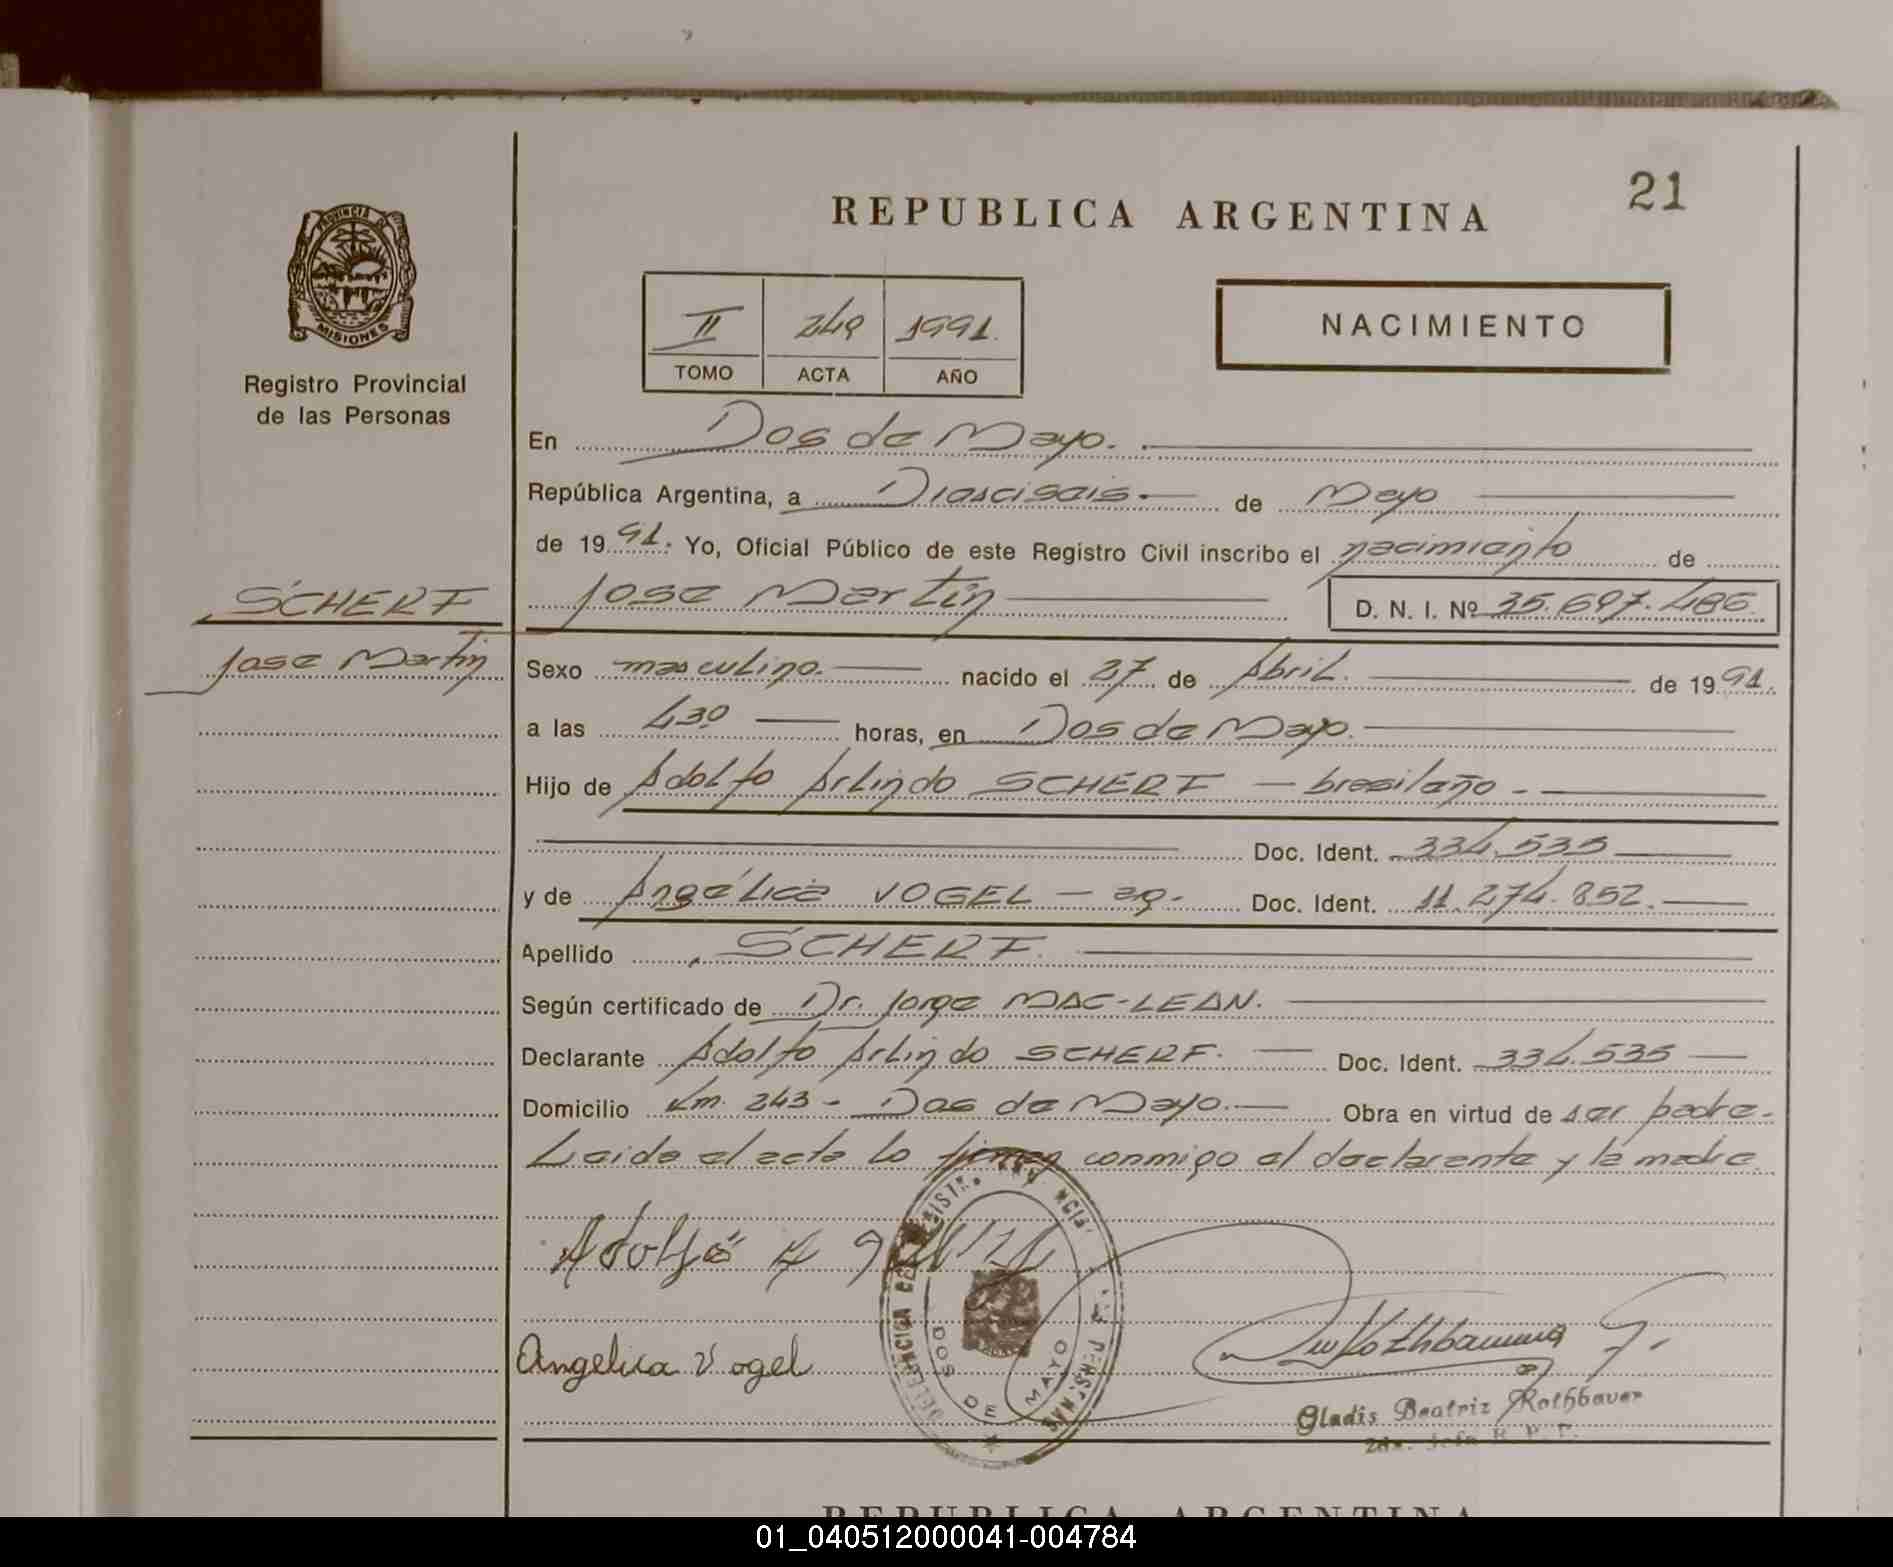 21
REPUBLICA ARGENTINA
PROVINCIA DE
MISIONES
Registro Provincial
de las Personas
II 249 1991.
TOMO ACTA AÑO
NACIMIENTO
En Dos de Mayo.
República Argentina, a Dieciseis de Mayo
de 1991. Yo, Oficial Público de este Registro Civil inscribo el nacimiento de
SCHERF
Jose Martin D. N. I. Nº 35.697.486
Jose Martin
Sexo masculino. nacido el 27 de Abril. de 1991.
a las 4 30 horas, en Dos de Mayo.
Hijo de Adolfo Arlindo SCHERF - brasileño -
Doc. Ident. 334.535
y de Angélica VOGEL - ag. Doc. Ident. 11.274.852.
Apellido SCHERF.
Según certificado de Dr. Jorge MAC-LEAN.
Declarante Adolfo Arlindo SCHERF. Doc. Ident. 334.535
Domicilio Km. 243 - Dos de Mayo. Obra en virtud de ser padre.
Leida el acta lo firman conmigo el declarante y la madre
Adolfo A
Angelica Vogel
DOS DE MAYO
Rothbauer
Gladis Beatriz Rothbauer
REPUBLICA ARGENTINA
01_040512000041-004784